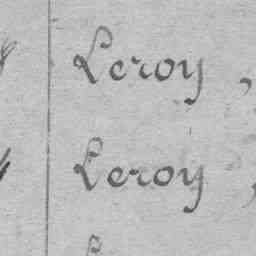 Leroy,
Leroy,